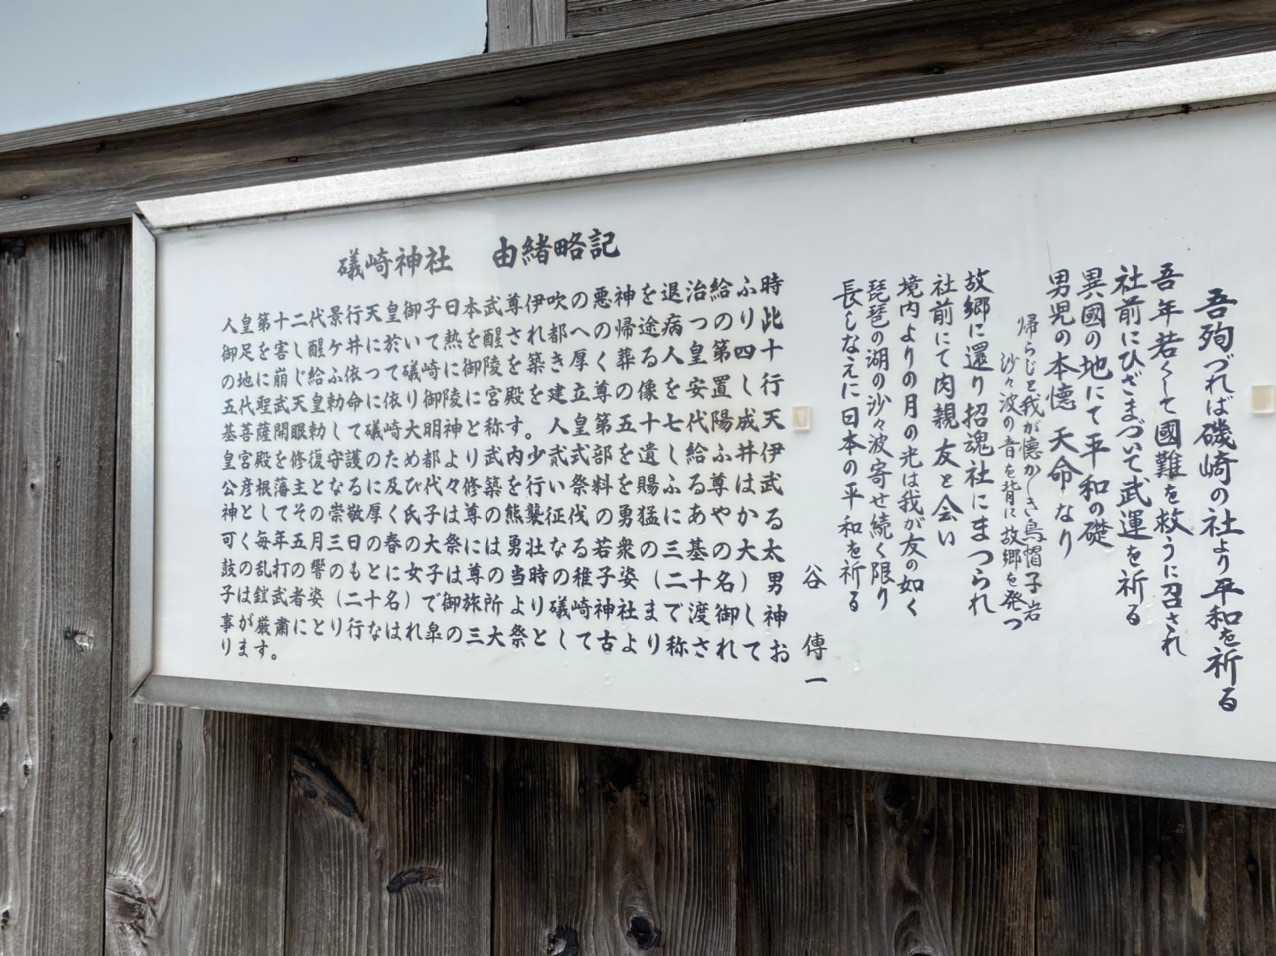 礒崎神社　由緒略記
人皇第十二代景行天皇御子日本武尊伊吹の悪神を退治給ふ時
御足を害し醒ケ井に於いて熱を醒され都への帰途病つのり比
の地に崩じ給ふ依つて礒崎に御陵を築き厚く葬る人皇第四十
五代聖武天皇勅命に依り御陵に宮殿を建立尊の像を安置し行
基菩薩開眼勅して礒崎大明神と称す。人皇第五十七代陽成天
皇宮殿を修復守護のため都より武内少貮式部を遺し給ふ井伊
公彦根藩主となるに及び代々修築を行い祭料を賜ふる尊は武
神としてその崇敬厚く氏子は尊の熊襲征伐の勇猛にあやかる
可く毎年五月三日の春の大祭には勇壮なる若衆の三基の大太
鼓の乱打の響のもとに女子は尊の当時の稚子姿（二十名）男
子は鎧武者姿（二十名）で御旅所より礒崎神社まで渡御し神
事が厳粛にとり行なはれ県の三大祭として古より称されてお
ります。
吾殉づれば磯崎の社より平和を祈る
吾年若くして國難を救うに召され
社前にひざまづいて武運を祈る
異國の地にて平和の礎
男児の本懐天命なり
帰らじと我が懐かしき烏帽子岩
沙々波の音を背に故郷を発つ
故郷に還り招魂社にまつられ
社前にて肉親友と会い
境内よりの月の光は我が友の如く
琵琶の湖の沙々波寄せ続く限り
長しなえに日本の平和を祈る
谷　傳一